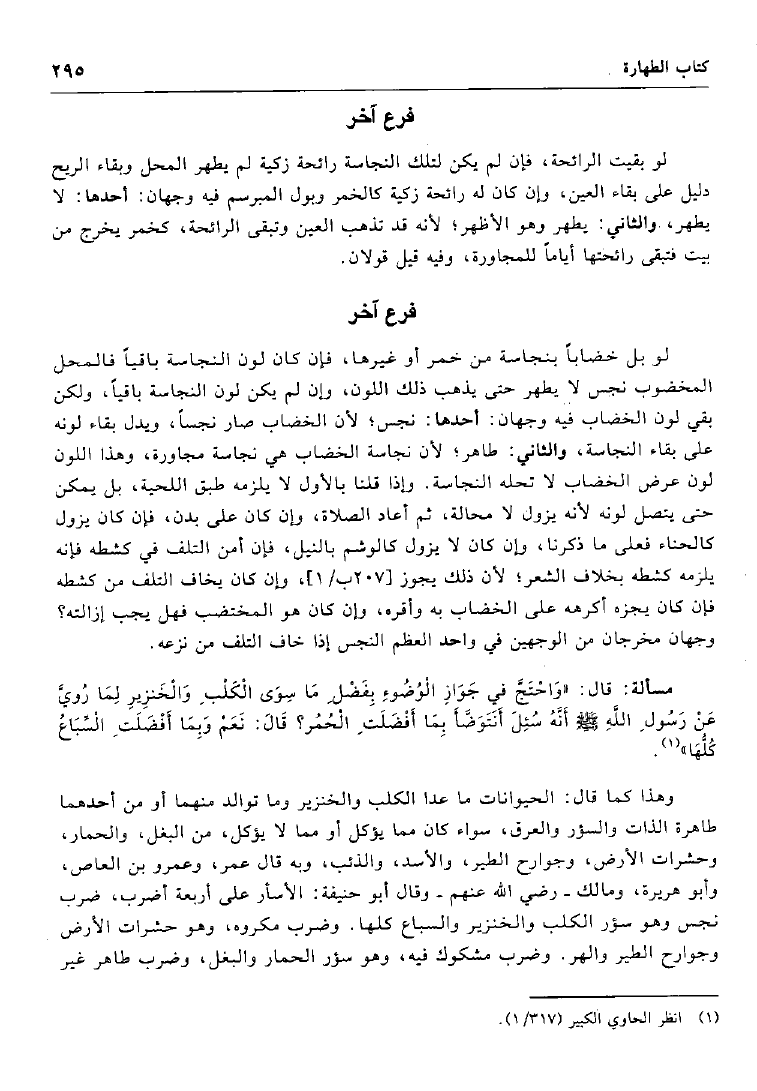 كتاب الطهارة ٢٩٥
فرع آخر
لو بقيت الرائحة، فإن لم يكن لتلك النجاسة رائحة زكية لم يطهر المحل وبقاء الريح
دليل على بقاء العين، وإن كان له رائحة زكية كالخمر وبول المبرسم فيه وجهان: أحدها: لا
يطهر، والثاني: يطهر وهو الأظهر؛ لأنه قد تذهب العين وتبقى الرائحة، كخمر يخرج من
بيت فتبقى رائحتها أياماً للمجاورة، وفيه قيل قولان.
فرع آخر
لو بل خضاباً بنجاسة من خمر أو غيرها، فإن كان لون النجاسة باقياً فالمحل
المخضوب نجس لا يطهر حتى يذهب ذلك اللون، وإن لم يكن لون النجاسة باقياً، ولكن
بقي لون الخضاب فيه وجهان: أحدها: نجس؛ لأن الخضاب صار نجساً، ويدل بقاء لونه
على بقاء النجاسة، والثاني: طاهر؛ لأن نجاسة الخضاب هي نجاسة مجاورة، وهذا اللون
لون عرض الخضاب لا تحله النجاسة. وإذا قلنا بالأول لا يلزمه طبق اللحية، بل يمكن
حتى يتصل لونه لأنه يزول لا محالة، ثم أعاد الصلاة، وإن كان على بدن، فإن كان يزول
كالحناء فعلى ما ذكرنا، وإن كان لا يزول كالوشم بالنيل، فإن أمن التلف في كشطه فإنه
يلزمه كشطه بخلاف الشعر؛ لأن ذلك يجوز [٢٠٧ب/١]، وإن كان يخاف التلف من كشطه
فإن كان يجزه أكرهه على الخضاب به وأقره، وإن كان هو المختضب فهل يجب إزالته؟
وجهان مخرجان من الوجهين في واحد العظم النجس إذا خاف التلف من نزعه.
مسألة: قال: «وَاحْتَجَّ في جَوَازِ الْوُضُوءِ بِفَضْلِ مَا سِوَى الْكَلْبِ وَالْخَنزِيرِ لِمَا رُوِيَّ
عَنْ رَسُولِ اللَّهِ ﷺ أَنَّهُ سُئِلَ أَنَتَوَضَّأَ بِمَا أَفْضَلَتِ الْحُمُر؟ قَالَ: نَعَمْ وَبِمَا أَفْضَلَتِ السِّبَاعُ
كُلُّهَا»(١).
وهذا كما قال: الحيوانات ما عدا الكلب والخنزير وما توالد منهما أو من أحدهما
طاهرة الذات والسؤر والعرق، سواء كان مما يؤكل أو مما لا يؤكل، من البغل، والحمار،
وحشرات الأرض، وجوارح الطير، والأسد، والذئب، وبه قال عمر، وعمرو بن العاص،
وأبو هريرة، ومالك ـ رضي الله عنهم ـ وقال أبو حنيفة: الأسآر على أربعة أضرب، ضرب
نجس وهو سؤر الكلب والخنزير والسباع كلها. وضرب مكروه، وهو حشرات الأرض
وجوارح الطير والهر. وضرب مشكوك فيه، وهو سؤر الحمار والبغل، وضرب طاهر غير
(١) انظر الحاوي الكبير (١/٣١٧).